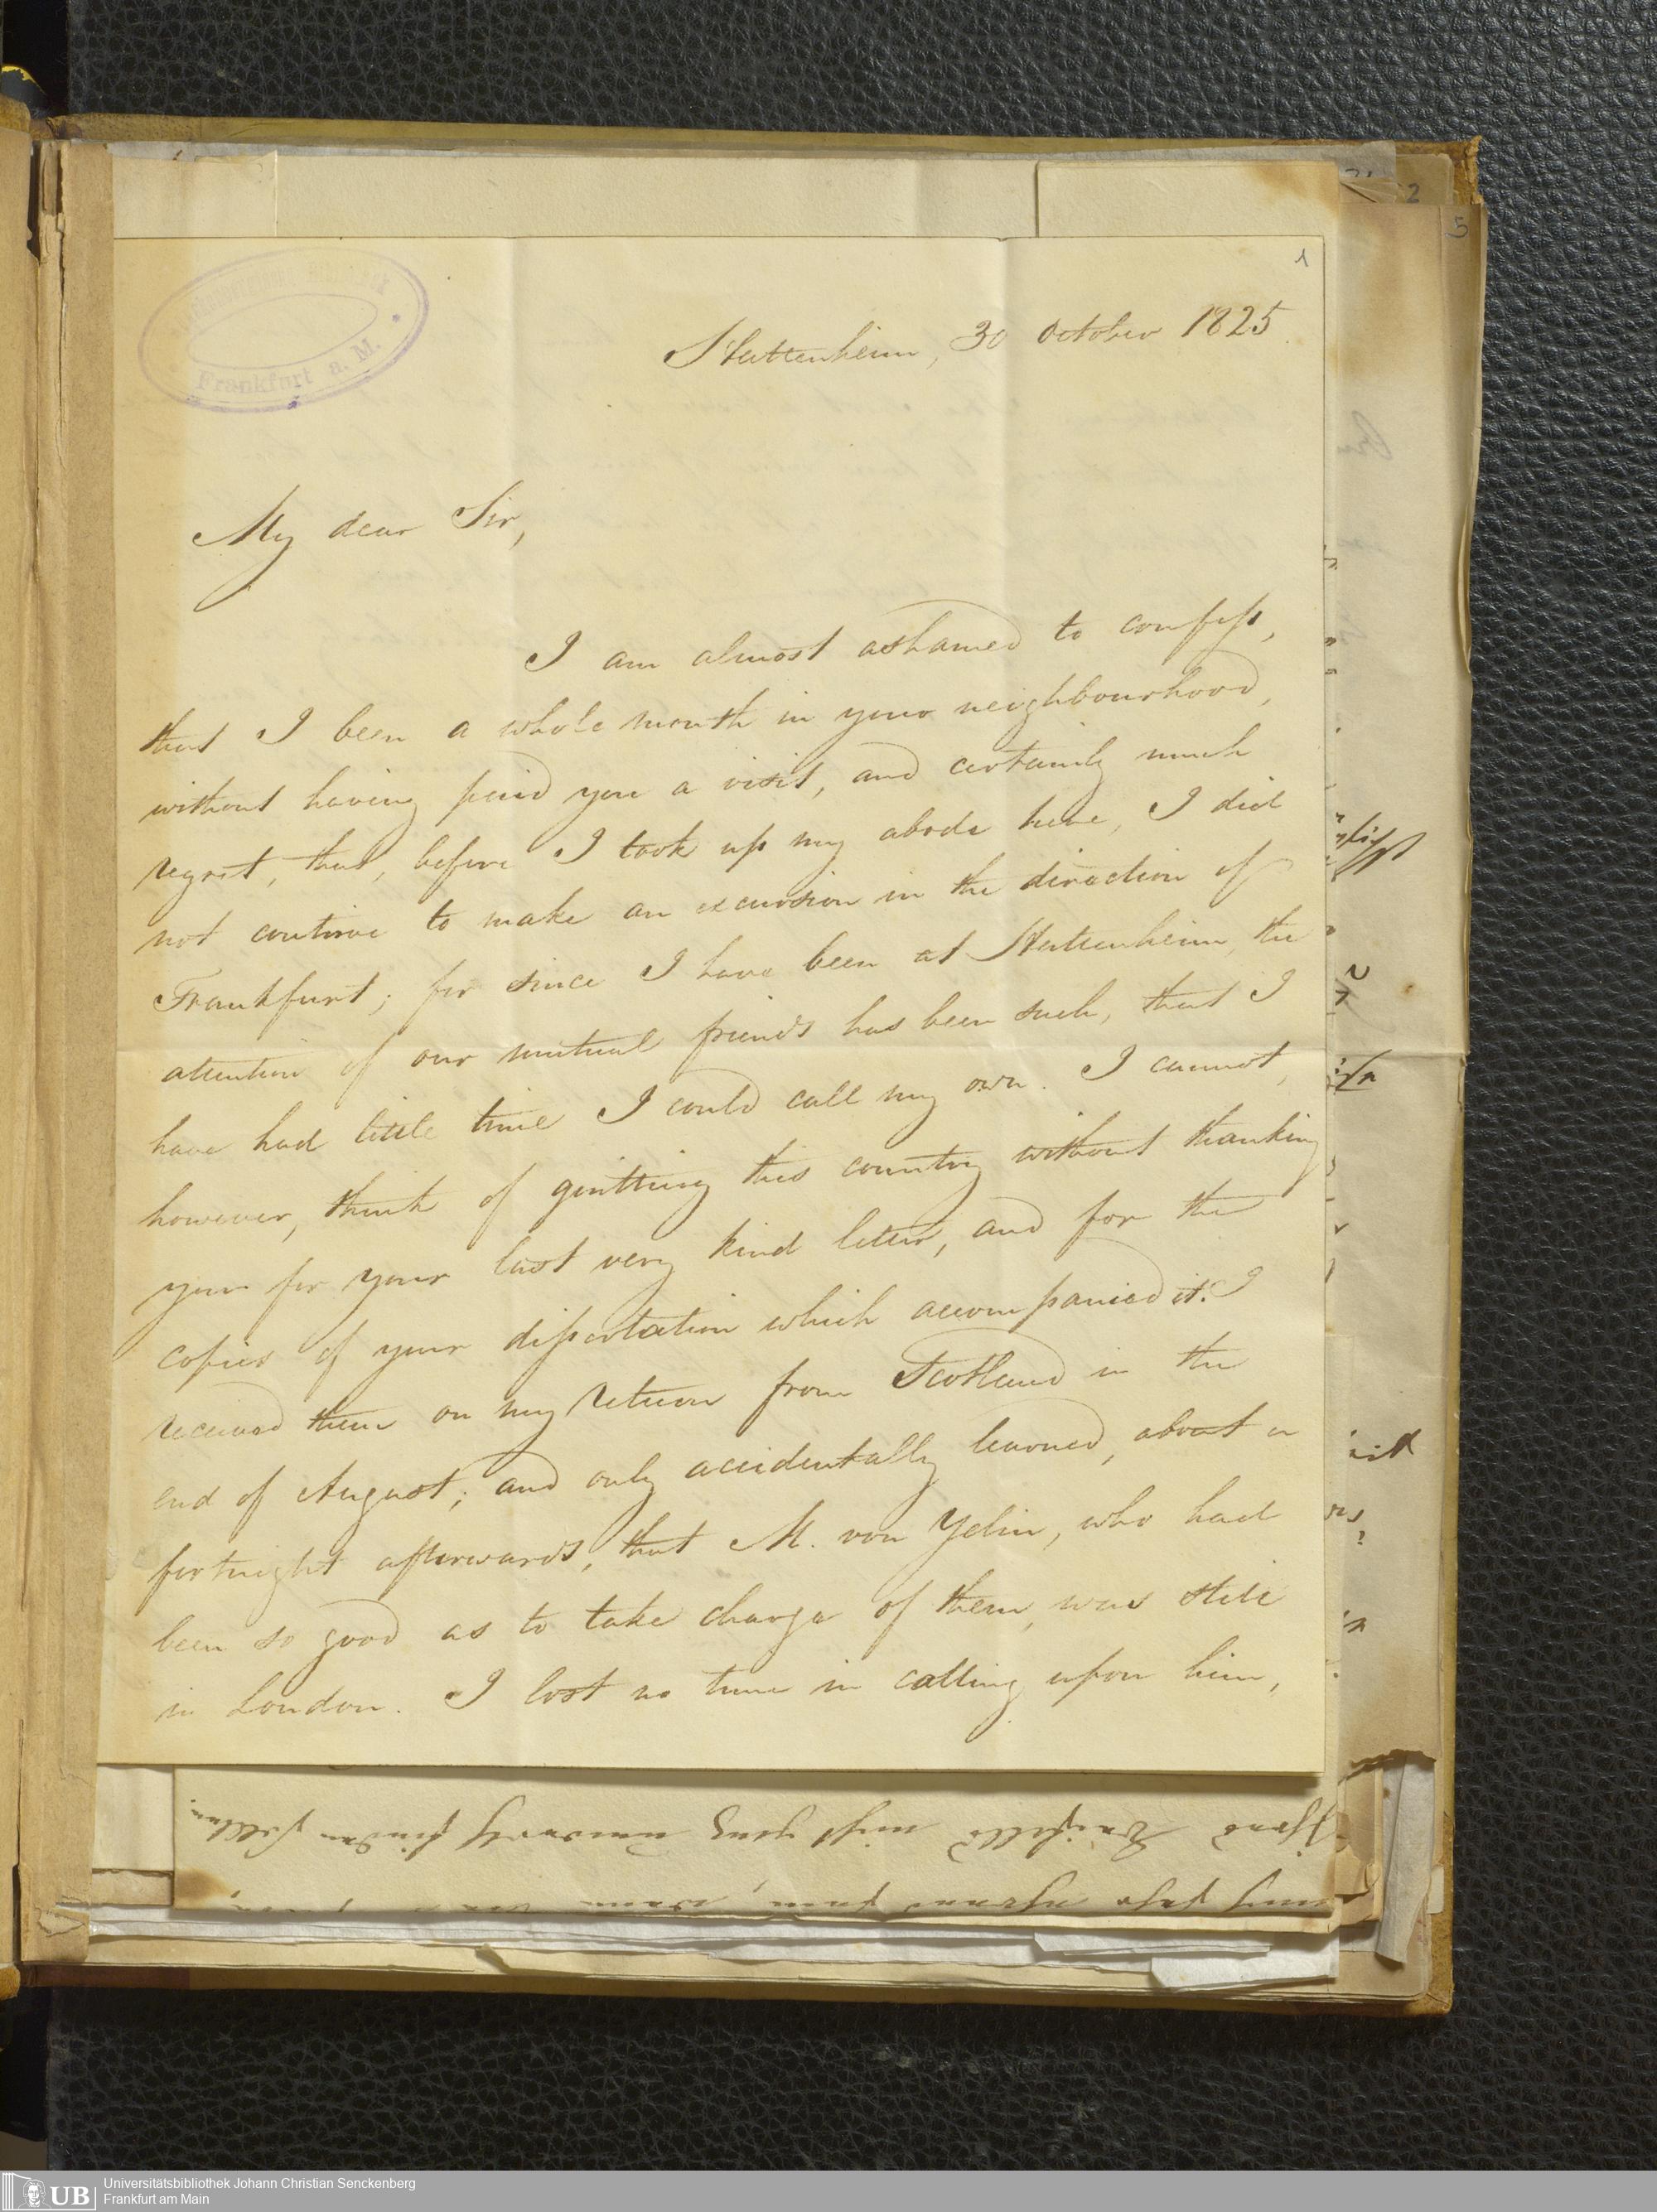 1
Frankfurt a. M.
Stuttenheim, 30 October 1825.
My dear Sir,
I am almost ashamed to confess,
that I been a whole month in your neighbourhood,
without having paid you a visit, and certainly much
regret, that, before I took up my abode here, I did
not contrive to make an excursion in the direction of
Frankfurt; for since I have been at Stuttenheim, the
attention of our mutual friends has been such, that I
have had little time I could call my own. I cannot,
however, think of quitting this country without thanking
you for your last very kind letter, and for the
copies of your dissertation which accompanied it. I
received them on my return from Scotland in the
end of August; and only accidentally learned, about a
fortnight afterwards, that M. von Yelin, who had
been so good as to take charge of them, was still
in London. I lost no time in calling upon him,
2
5
UB
Universitätsbibliothek Johann Christian Senckenberg
Frankfurt am Main